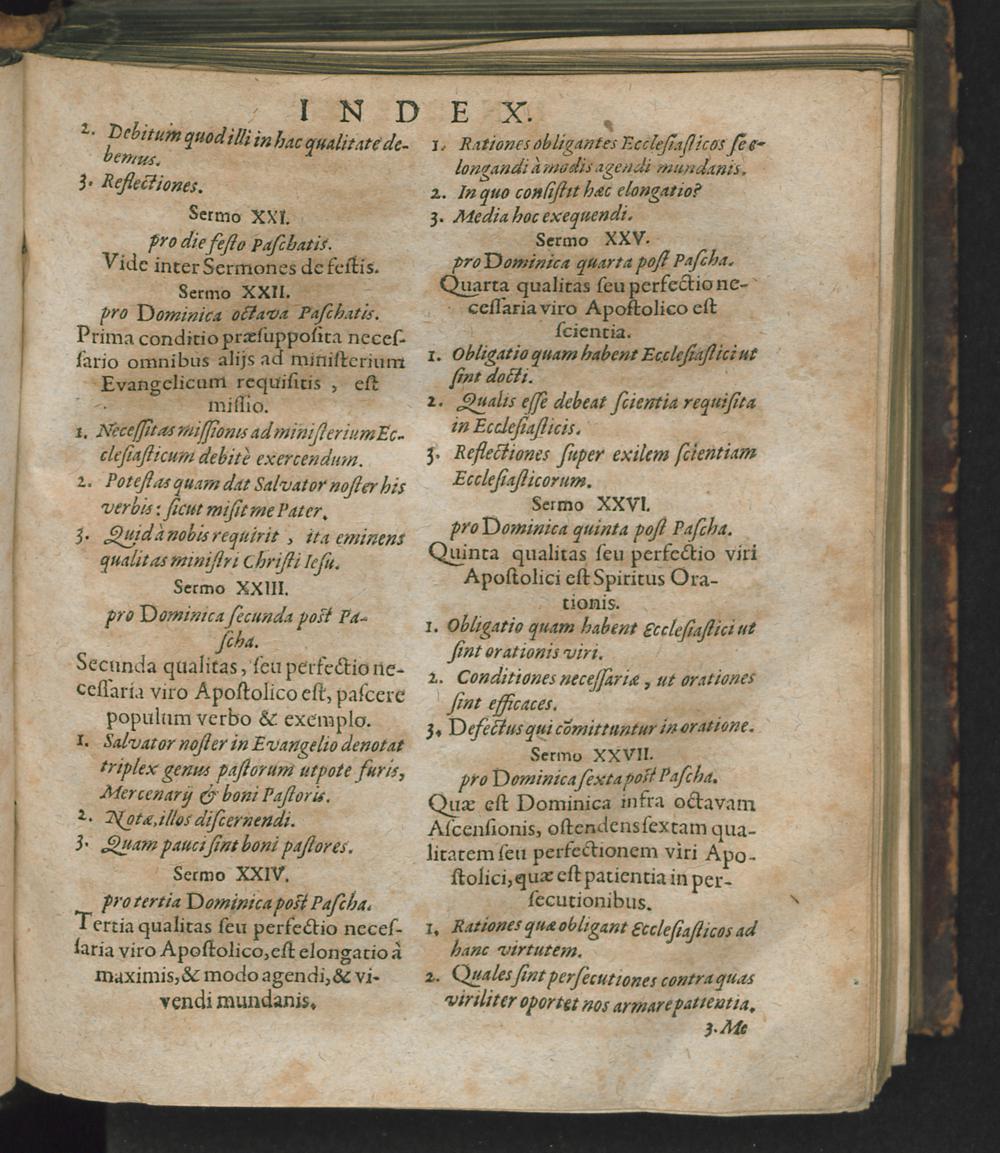 INDEX.
2. Debitum quod illi in hac qualitate de-
bemus.
3. Reflectiones.
Sermo XXI.
pro die festo Paschatis.
Vide inter Sermones de festis.
Sermo XXII.
pro Dominica octava Paschatis.
Prima conditio præsupposita neces-
sario omnibus alijs ad ministerium
Evangelicum requisitis, est
missio.
1. Necessitas missionis ad ministerium Ec-
clesiasticum debitè exercendum.
2. Potestas quam dat Salvator noster his
verbis: sicut misit me Pater.
3. Quid à nobis requirit, ita eminens
qualitas ministri Christi Iesu.
Sermo XXIII.
pro Dominica secunda post Pa-
scha.
Secunda qualitas, seu perfectio ne-
cessaria viro Apostolico est, pascere
populum verbo & exemplo.
1. Salvator noster in Evangelio denotat
triplex genus pastorum utpote furis,
Mercenarij & boni Pastoris.
2. Notæ, illos discernendi.
3. Quam pauci sint boni pastores.
Sermo XXIV.
pro tertia Dominica post Pascha.
Tertia qualitas seu perfectio neces-
saria viro Apostolico, est elongatio à
maximis, & modo agendi, & vi-
vendi mundanis.
1. Rationes obligantes Ecclesiasticos se e-
longandi à modis agendi mundanis.
2. In quo consistit hæc elongatio?
3. Media hoc exequendi.
Sermo XXV.
pro Dominica quarta post Pascha.
Quarta qualitas seu perfectio ne-
cessaria viro Apostolico est
scientia.
1. Obligatio quam habent Ecclesiastici ut
sint docti.
2. Qualis esse debeat scientia requisita
in Ecclesiasticis.
3. Reflectiones super exilem scientiam
Ecclesiasticorum.
Sermo XXVI.
pro Dominica quinta post Pascha.
Quinta qualitas seu perfectio viri
Apostolici est Spiritus Ora-
tionis.
1. Obligatio quam habent Ecclesiastici ut
sint orationis viri.
2. Conditiones necessariæ, ut orationes
sint efficaces.
3. Defectus qui cõmittuntur in oratione.
Sermo XXVII.
pro Dominica sexta post Pascha.
Quæ est Dominica infra octavam
Ascensionis, ostendens sextam qua-
litatem seu perfectionem viri Apo-
stolici, quæ est patientia in per-
secutionibus.
1. Rationes quæ obligant Ecclesiasticos ad
hanc virtutem.
2. Quales sint persecutiones contra quas
viriliter oportet nos armare patientia.
3. Me